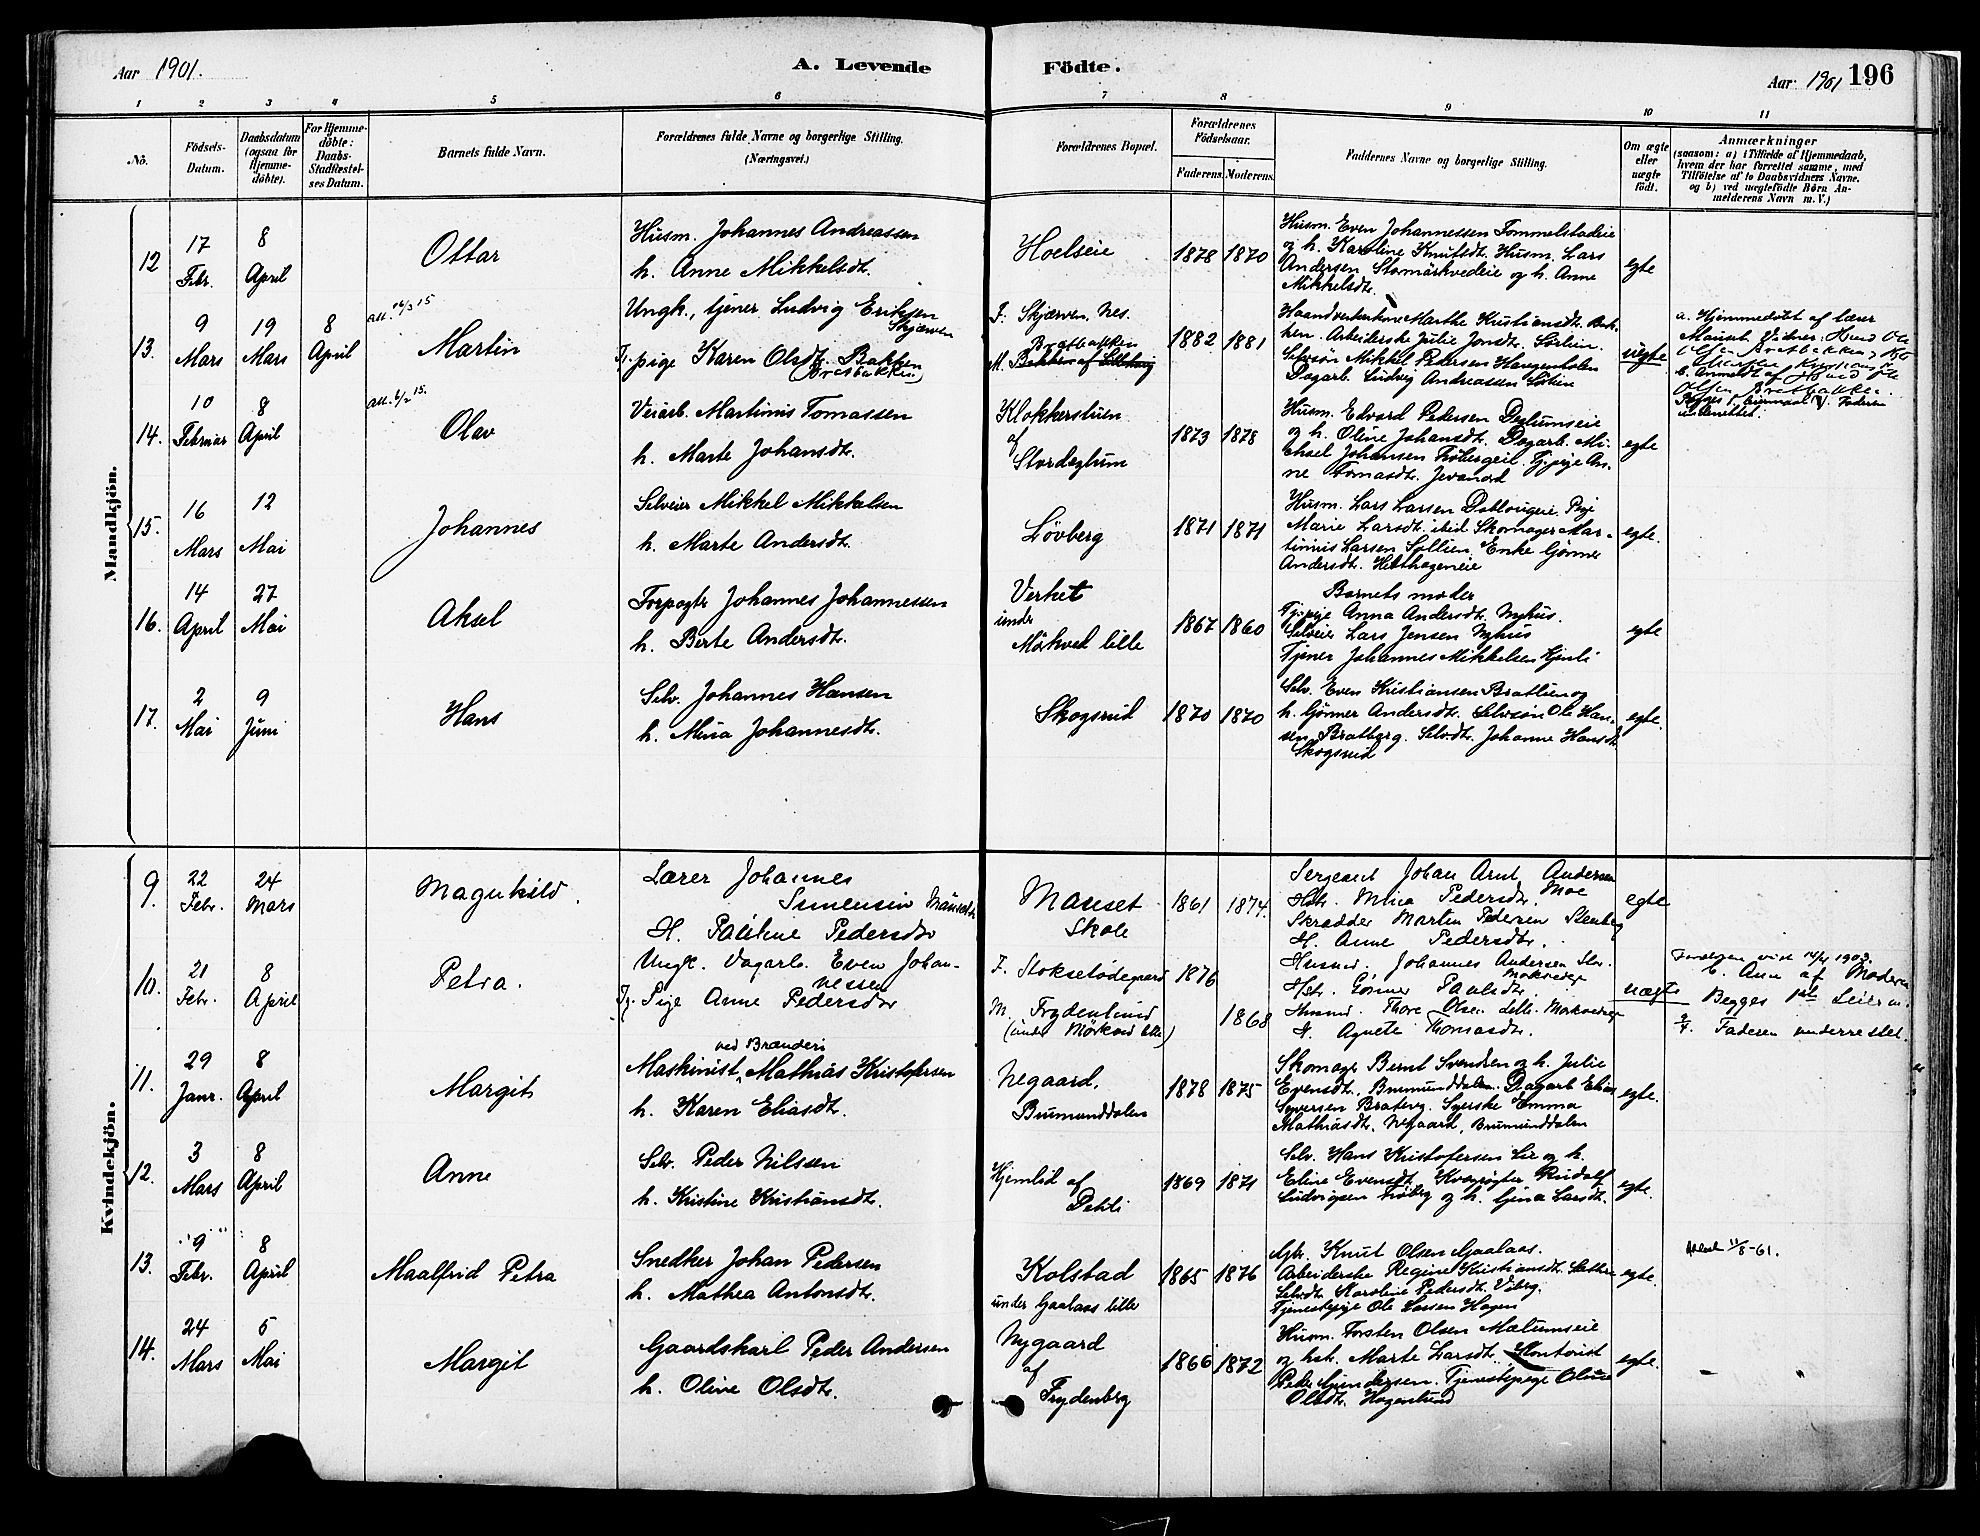 Aar 1901.
A. Levende
Födte.
Aar 1901 196
1 2 3 4 5 6 7 8 9 10 11
No.
Födsels-
Datum.
Daabsdatum
(ogsaa for
Hjemme-
döbte).
For Hjemme-
döbte:
Daabs-
Stadfæstel-
ses Datum.
Barnets fulde Navn.
Forældrenes fulde Navne og borgerlige Stilling.
(Næringsvei.)
Forældrenes Bopæl.
Forældrenes
Födselsaar.
Faderens. Moderens.
Faddernes Navne og borgerlige Stilling.
Om ægte
eller
uægte
født.
Anmærkninger
(saasom: a) i Tilfælde af Hjemmedaab,
hvem der har forrettet samme, med
Tilföielse af to Daabsvidners Navne.
og b) ved uægtefödte Börn An-
melderens Navn m. V.)
Mandkjön.
12
17
Febr.
8
April
Ottar
Husm. Johannes Andreassen
h. Anne Mikkelsdt.
Hoelseie
1878 1870
Husm. Even Johannessen Tommelstadeie
og h. Karoline Knutsdt. Husm. Lars
Andersen Stormörkvedeie og h. Anne
Mikkelsdt.
egte
13.
9
Mars
19
Mars
8
April
att. 16/3 15
Martin
Ungk., tjener Ludvig Eriksen
Skjærven
Tj. pige Karen Olsdt. Bakken
(Bratbakken)
F: Skjærven, Nes.
Bratbakken
M.
1882 1881
Marthe Kristiansdt.
Arbeiderske Julie Jonsdt.
Selvsön Mikkel Pedersen Haugerstolen
Dagarb. Ludvig Andreassen
uegte
a. Hjemmedöbt af lærer
Mauset. Vidner: Husm Ole
Olsen Bratbakken,
b. Anmeldt af Husm Ole
Olsen Bratbakken.
Begges 1. Leiermaal. Faderen
underrettet.
14.
10
Februar
8
April
att. 6/2 15.
Olav
Veiarb. Martinus Tomassen
h. Marte Johansdt.
Klokkerstuen
af
Stordeglum
1873 1878
Husm. Edvard Pedersen Deglumseie
og h. Oline Johansdt. Dagarb. Mi-
chael Johansen Frøbergeie. Tj.pige An-
ne Tomasdt. Jevanord
egte
15.
16
Mars
12
Mai
Johannes
Selveier Mikkel Mikkelsen
h. Marte Andersdt.
Lövberg
1871 1871
Husm. Lars Larsen Doblougeie. Pige
Marie Larsdt. ibid. Skomager Mar-
tinius Larsen Sollien. Enke Gönner
Andersdt. Helthageneie
egte.
16.
14
April
27
Mai
Aksel
Forpagter Johannes Johannessen
h. Berte Andersdt.
Verket
under
Mörkved lille
1867 1860
Barnets moder
Tj.pige Anna Andersdt. Nyhus.
Selveier Lars Jensen Nyhus
Tjener Johannes Mikkelsen Hjemli
egte
17.
2
Mai
9
Juni
Hans
Selv. Johannes Hansen
h. Mina Johannesdt.
Skogsrud
1870 1870
Selv. Even Kristiansen Bratlien og
h. Gönner Andersdt. Selvsön Ole Han-
sen Bratberg. Selvdt. Johanne Hansdt.
Skogsrud
egte.
Kvindekjön.
9.
22
Febr.
24
Mars
Magnhild.
Lærer Johannes
Simensen Mauset
H. Pauline Pedersdtr
Mauset
Skole
1861 1874.
Sergeant Johan Arnt Andersen
Moe
Hstr. Mina Pedersdtr.
Skrædder Martin Pedersen Stenberg
H. Anne Pedersdtr.
egte
10.
21
Febr.
8
April
Petra.
Ungk. Dagarb. Even Johan-
nessen
Tj. Pige Anne Pedersdtr
F. Stoksetødegaard
M. Frydenlund
(under Mörkved lille)
1876
1868
Husmd. Johannes Andersen Str.
Mørkvedeie
Hstr. Gönner Paulsdtr
Husmd. Thore Olsen Lille Mørkvedeie
H. Agnete Thomasdtr.
uægte
1903.
b. Anm. af Moderen
Begges 1ste Leierm.
Faderen underrettet.
11.
29
Janr.
8
April
Margit
ved Brænderi
Maskinist Mathias Kristofersen
h. Karen Eliasdt.
Nygaard,
Brumunddalen
1878 1875
Skomager Bernt Svendsen og h. Julie
Evensdt. Brumunddalen. Dagarb Elias
Syversen Brateng. Syerske Emma
Mathiasdt. Nygaard, Brumunddalen
egte.
12.
3
Mars
8
April
Anne
Selv. Peder Nilssen
h. Kristine Kristiansdt.
Hjemlid af
Dehli
1869 1871
Selv. Hans Kristofersen Lie og h.
Eline Evensdt. Kvægrøgter Rudolf
Ludvigsen Frøberg og h. Gina Larsdt.
egte.
13.
9
Febr.
8
April
Maalfrid Petra
Snedker Johan Pedersen
h. Mathea Antonsdt.
Kolstad
under Gaalaas lille
1865 1876
Gbr. Knut Olsen Gaalaas.
Arbeiderske Regine Kristiansdt. Sætre
Selvdt. Karoline Pedersdt. Viberg.
Tjenestepige Ole Larsen Hagen
egte.
11/8-61.
14.
24
Mars
5
Mai
Margit
Gaardskarl Peder Andersen
h. Olive Olsdt.
Nygaard
af
Frydenberg
1866 1872
Husm. Torsten Olsen Mælumseie
og hst. Marte Larsdt. Kontorist
Peder Gundersen. Tjenestepige Oline
Olsdt. Hagenlund
egte.